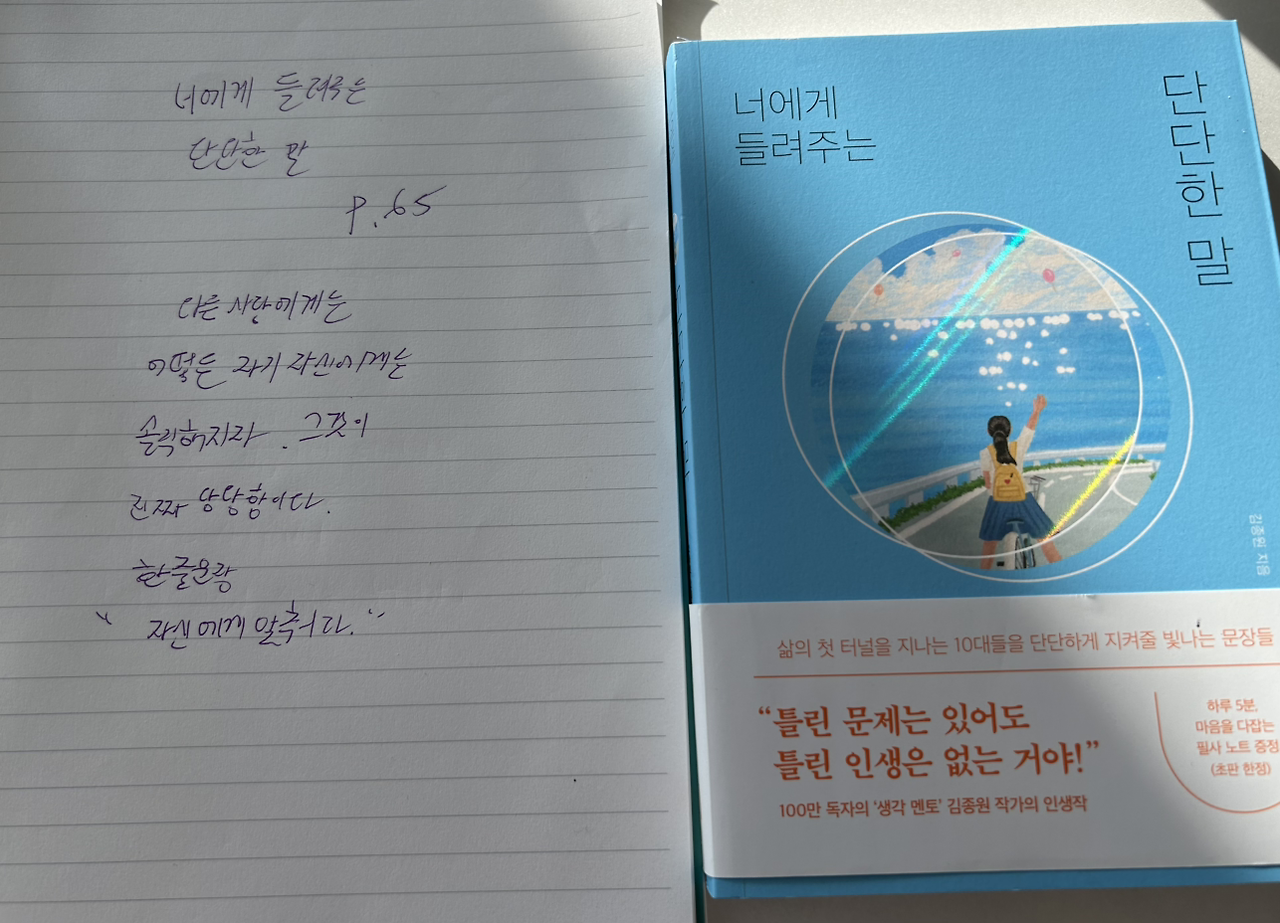 너에게 들려주는
단단한 말
P. 65
다른 사람에게는
어떻든 자기 자신에게는
솔직해지라. 그것이
진짜 당당함이다.
한줄문장
" 자신에게 맞추다. "
너에게
들려주는
단단한 말
김종원 지음
삶의 첫 터널을 지나는 10대들을 단단하게 지켜줄 빛나는 문장들
“틀린 문제는 있어도
틀린 인생은 없는 거야!”
100만 독자의 ‘생각 멘토’ 김종원 작가의 인생작
하루 5분,
마음을 다잡는
필사 노트 증정
(초판 한정)